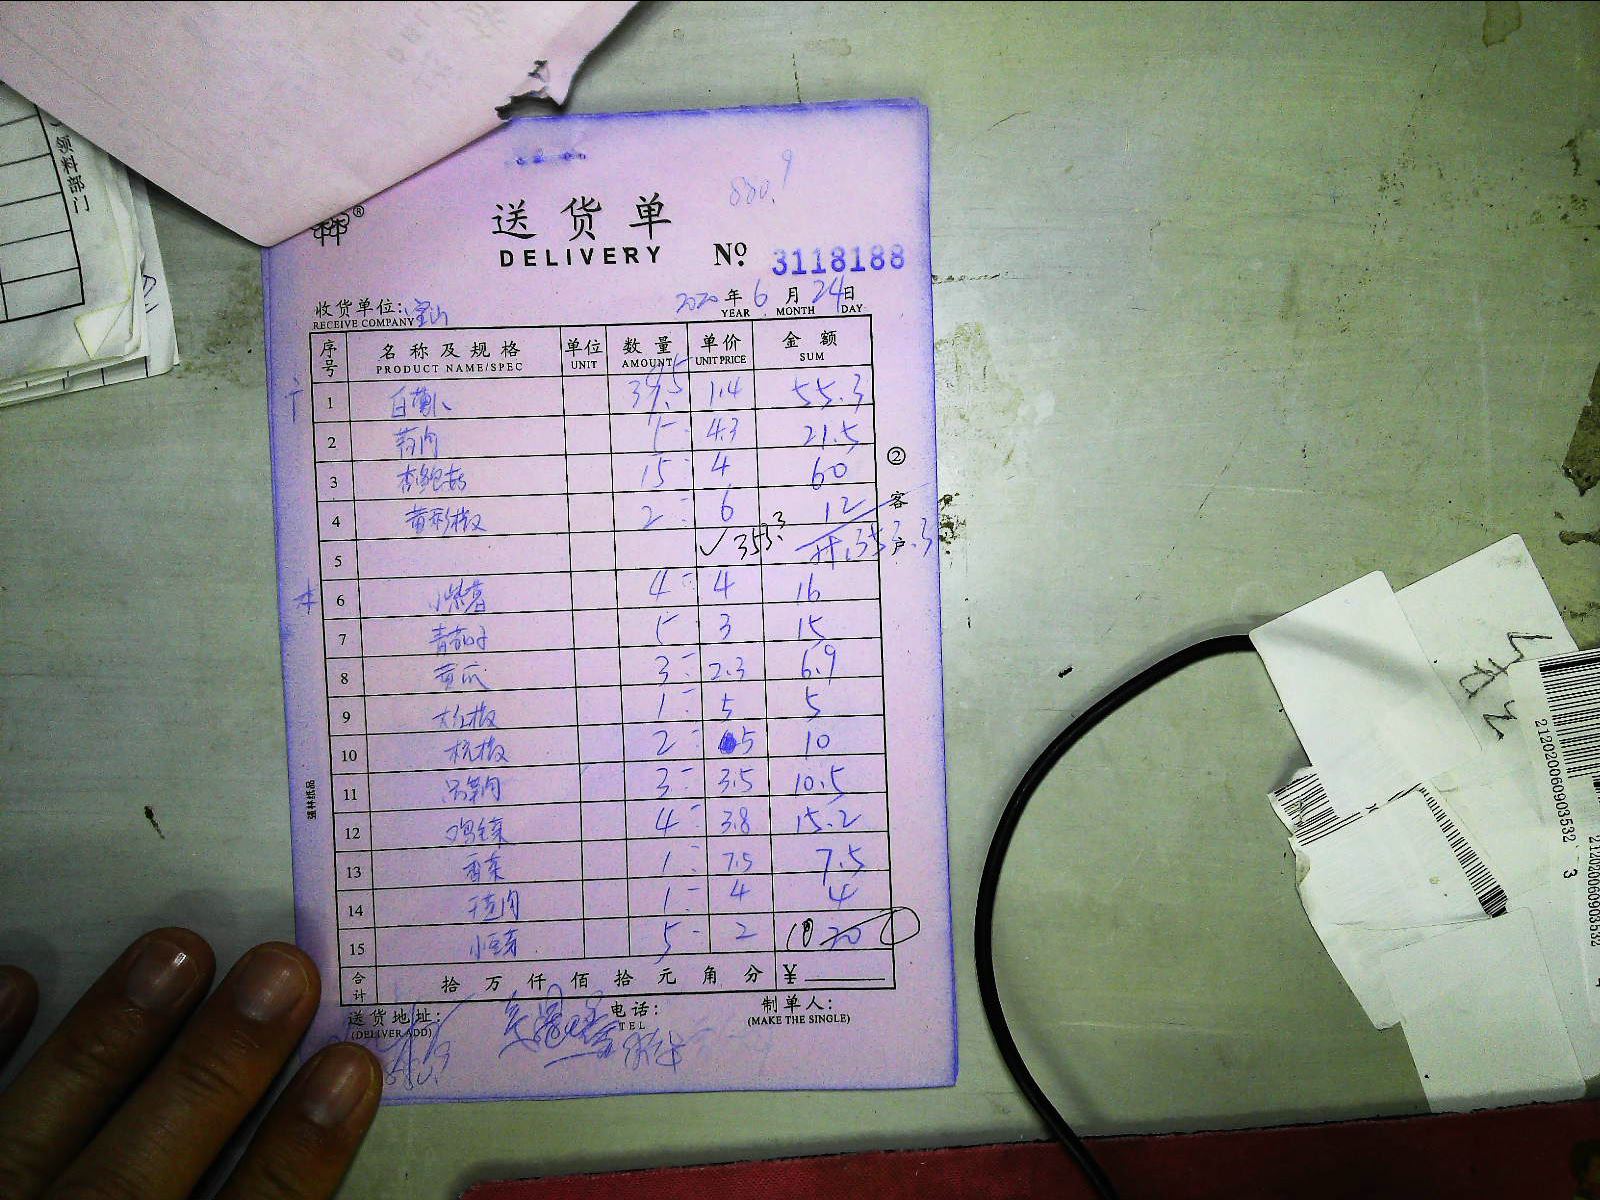 领料部门
880.9
林®
送货单
DELIVERY № 3118188
收货单位: 宝山 2020年6月24日
RECEIVE COMPANY YEAR MONTH DAY
序号 名称及规格 单位 数量 单价 金额
PRODUCT NAME/SPEC UNIT AMOUNT UNIT PRICE SUM
1 白萝卜 39.5 1.4 55.3
2 5 4.3 21.5
3 杏鲍菇 15 4 60
4 黄彩椒 2 6 12
5 ✓353.3 353.3
6 小紫薯 4 4 16
7 青茄子 5 3 15
8 黄瓜 3 2.3 6.9
9 大红椒 1 5 5
10 杭椒 2 5 10
11 3 3.5 10.5
12 4 3.8 15.2
13 香菜 1 7.5 7.5
14 1 4 4
15 小豆芽 5 2 10 20
合计 拾 万 仟 佰 拾 元 角 分 ¥
送货地址: 电话: 制单人:
(DELIVER ADD) TEL (MAKE THE SINGLE)
②客户
强林纸品
212020060903532 3
212020060903532